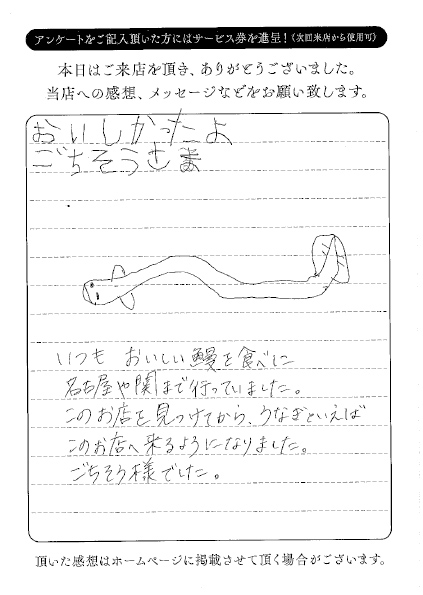 アンケートをご記入頂いた方にはサービス券を進呈！(次回来店から使用可)
本日はご来店を頂き、ありがとうございました。
当店への感想、メッセージなどをお願い致します。
おいしかったよ
ごちそうさま
いつも おいしい鰻を食べに
名古屋や関まで行っていました。
このお店を見つけてから、うなぎといえば
このお店へ来るようになりました。
ごちそう様でした。
頂いた感想はホームページに掲載させて頂く場合がございます。